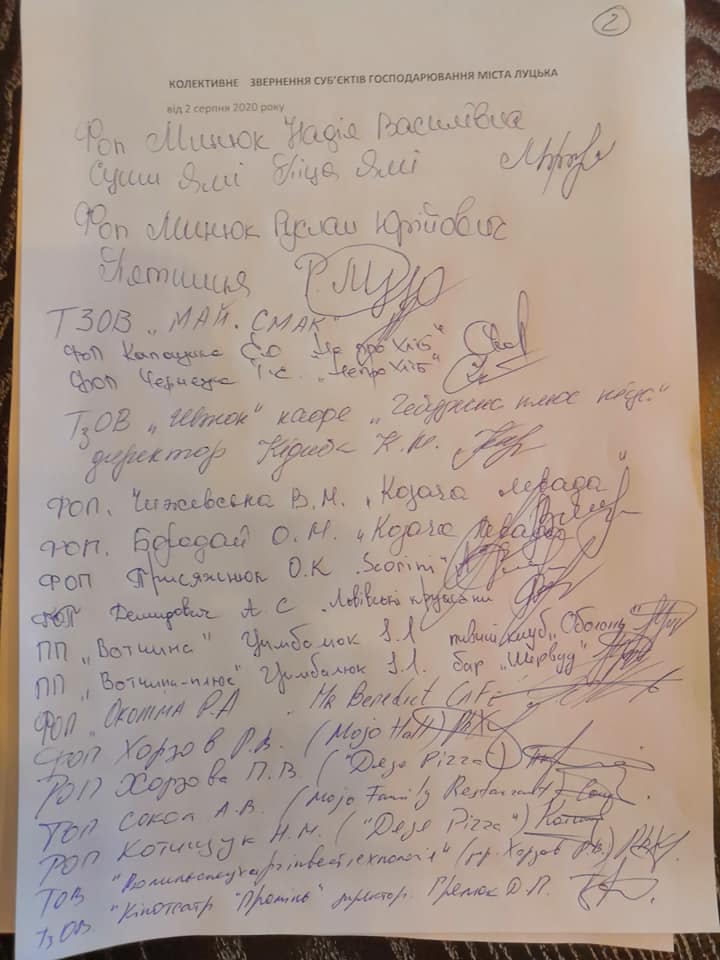 2
КОЛЕКТИВНЕ ЗВЕРНЕННЯ СУБ'ЄКТІВ ГОСПОДАРЮВАННЯ МІСТА ЛУЦЬКА
від 2 серпня 2020 року
Фоп Минюк Надія Василівна
Суши Ямі Піца Ямі
Фоп Минюк Руслан Юрійович
Пятниця
ТЗОВ „МАЙ. СМАК"
ФОП Капащика Є.О „Не про Хліб"
ФОП І.Є. „Не про Хліб"
ТзОВ кафе плюс
директор К.М.
ФОП. Чижевська В.М. „Козача левада"
ФОП. Бородай О.М. „Козача левада"
ФОП Присяжнюк О.К Scorini
ФОП Демидович А С Львівські круасани
ПП „Вотчина" Цимбалюк І.І пивний клуб „Оболонь"
ПП „Вотчина-плюс" Цимбалюк І.І. бар „Шервуд"
ФОП Р.А Mr Benedict CAFE
ФОП Хорзов Р.В. (Mojo Hall)
ФОП Хорзова П.В ("Deze Pizza")
ФОП Сокол А.В. (Mojo Family Restaurant)
ФОП Котищук Н.М. ("Deze Pizza")
ТОВ (др. Хорзов Р.В.)
ТзОВ "Кінотеатр "Промінь" директор. Гремюк Д.П.